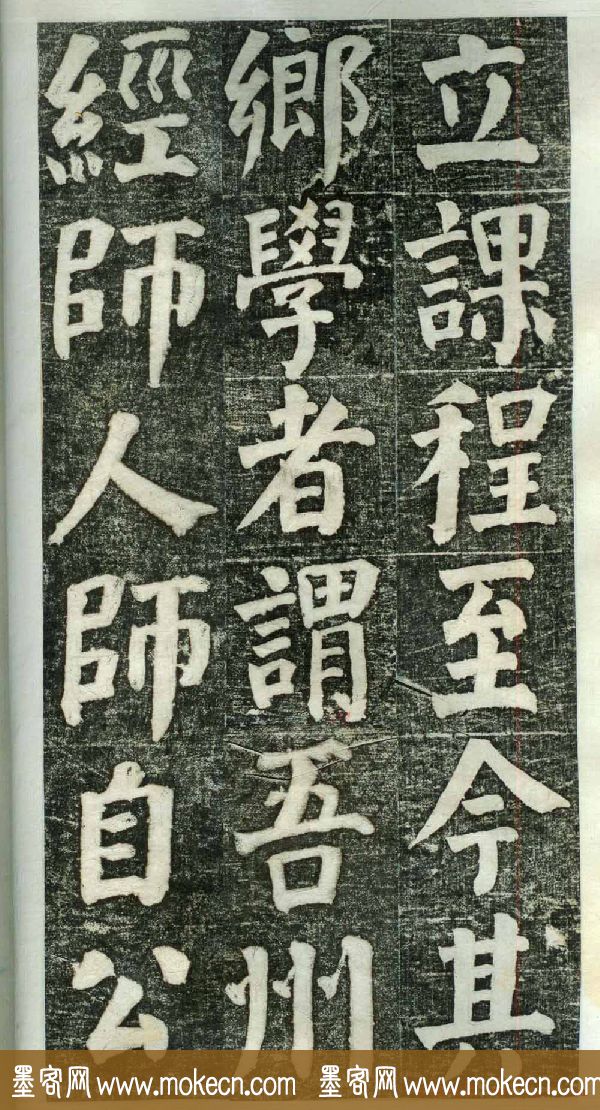 立課程至今其
鄉學者謂吾州
經師人師自公
墨客网 www.mokecn.com 墨客网 www.mokecn.com